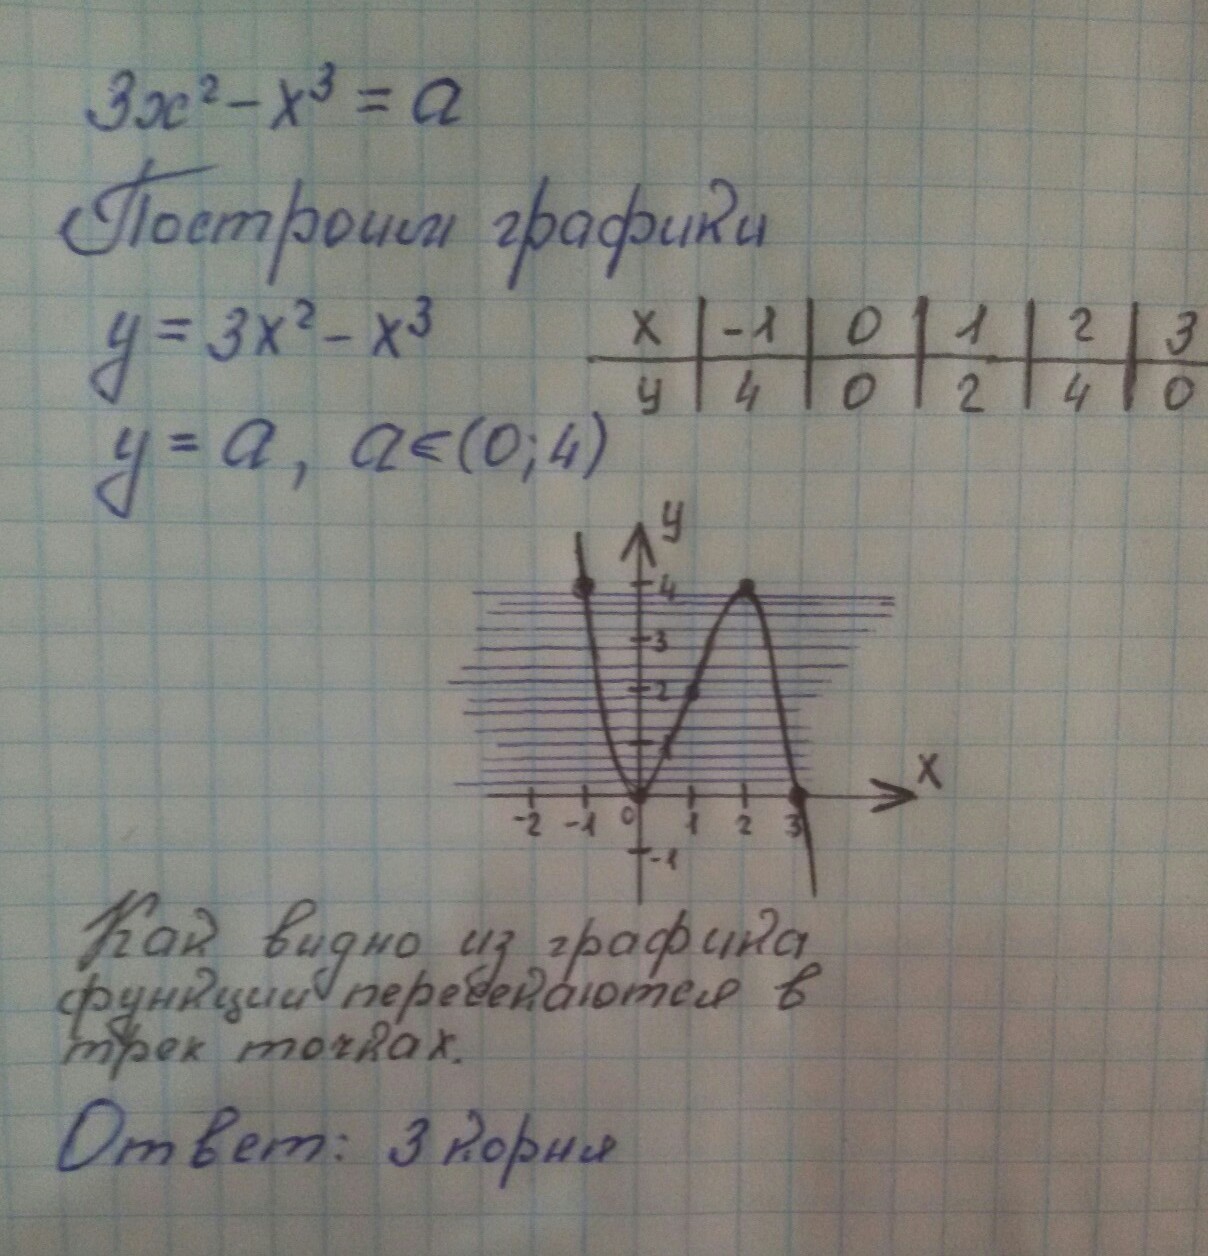 3x² - x³ = a
Построим графики
y = 3x² - x³
x | -1 | 0 | 1 | 2 | 3
y | 4 | 0 | 2 | 4 | 0
y = a, a ∈ (0; 4)
y
4
3
2
1
x
-2 -1 0 1 2 3
-1
Как видно из графика
функции пересекаются в
трёх точках.
Ответ: 3 корня